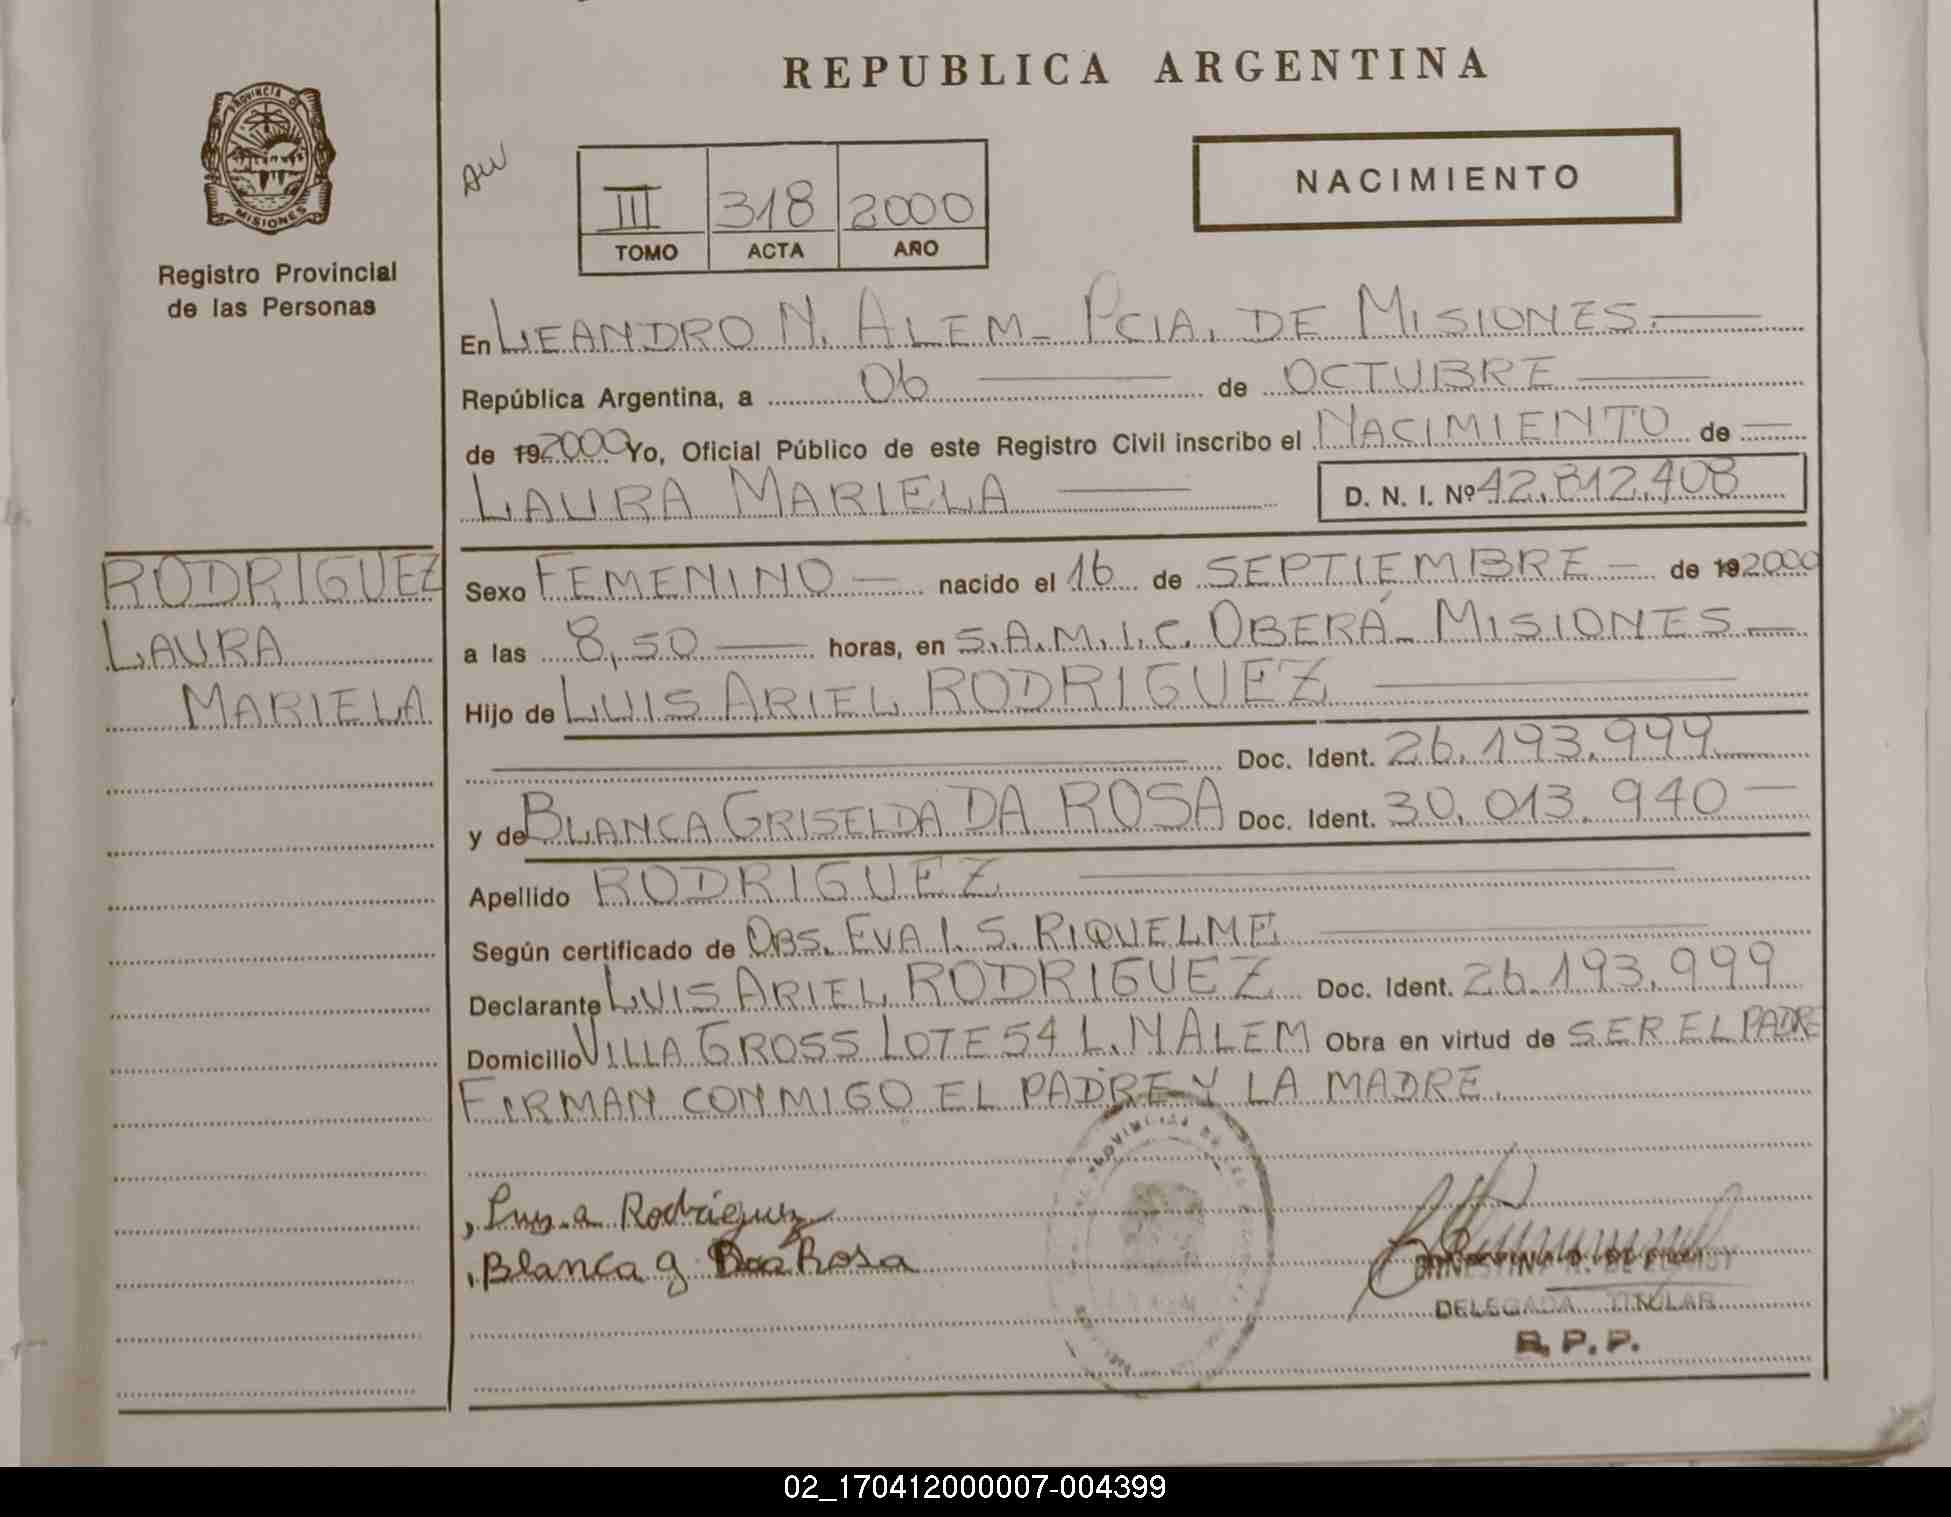 REPUBLICA ARGENTINA
PROVINCIA DE
MISIONES
Registro Provincial
de las Personas
III 318 2000
TOMO ACTA AÑO
NACIMIENTO
En LEANDRO N. ALEM - PCIA. DE MISIONES.
República Argentina, a 06 de OCTUBRE
de 192000 Yo, Oficial Público de este Registro Civil inscribo el NACIMIENTO de
LAURA MARIELA D. N. I. Nº 42.812.408
RODRIGUEZ
LAURA
MARIELA
Sexo FEMENINO nacido el 16 de SEPTIEMBRE de 192000
a las 8,50 horas, en S.A.M.I.C. OBERÁ - MISIONES
Hijo de LUIS ARIEL RODRIGUEZ
Doc. Ident. 26.193.999
y de BLANCA GRISELDA DA ROSA Doc. Ident. 30.013.940
Apellido RODRIGUEZ
Según certificado de OBS. EVA I. S. RIQUELME
Declarante LUIS ARIEL RODRIGUEZ Doc. Ident. 26.193.999
Domicilio VILLA GROSS LOTE 54 L. N ALEM Obra en virtud de SER EL PADRE
FIRMAN CONMIGO EL PADRE Y LA MADRE.
Luis a Rodriguez
Blanca g Da Rosa
DELEGADA TITULAR
R.P.P.
02_170412000007-004399